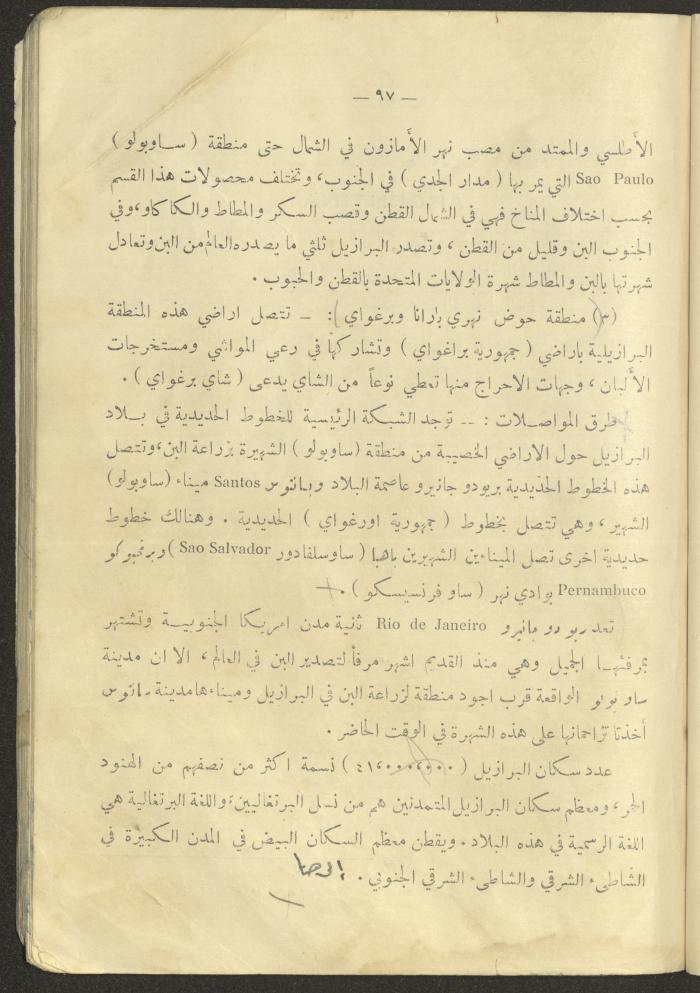 — ٩٧ —
الأطلسي والممتد من مصب نهر الأمازون في الشمال حتى منطقة ( ساوبولو )
Sao Paulo التي يمر بها ( مدار الجدي ) في الجنوب، وتختلف محصولات هذا القسم
بحسب اختلاف المناخ فهي في الشمال القطن وقصب السكر والمطاط والكاكاو، وفي
الجنوب البن وقليل من القطن ، وتصدر البرازيل ثلثي ما يصدره العالم من البن وتعادل
شهرتها بالبن والمطاط شهرة الولايات المتحدة بالقطن والحبوب .
(٣) منطقة حوض نهري بارانا وبرغواي ): — تتصل اراضي هذه المنطقة
البرازيلية باراضي ( جمهورية براغواي ) وتشاركها في رعي المواشي ومستخرجات
الألبان ، وجهات الاحراج منها تعطي نوعاً من الشاي يدعى ( شاي برغواي ) .
طرق المواصلات : — توجد الشبكة الرئيسية للخطوط الحديدية في بلاد
البرازيل حول الاراضي الخصيبة من منطقة (ساوبولو ) الشهيرة بزراعة البن، وتتصل
هذه الخطوط الحديدية بريودو جانيرو عاصمة البلاد وسانتوس Santos ميناء (ساوبولو)
الشهير ، وهي تتصل بخطوط ( جمهورية اورغواي ) الحديدية . وهنالك خطوط
حديدية اخرى تصل الميناءين الشهيرين باهيا ( ساوسلفادور Sao Salvador ) وبرنمبوكو
Pernambuco بوادي نهر ( ساو فرنسيسكو ) .
تعد ريو دو جانيرو Rio de Janeiro ثانية مدن امريكا الجنوبية وتشتهر
بمرفئها الجميل وهي منذ القديم اشهر مرفأ لتصدير البن في العالم ، الا ان مدينة
ساو بولو الواقعة قرب اجود منطقة لزراعة البن في البرازيل وميناءها مدينة سانتوس
أخذتا تزاحمانها على هذه الشهرة في الوقت الحاضر .
عدد سكان البرازيل ( ٤١،٠٠٠،٠٠٠ ) نسمة اكثر من نصفهم من الهنود
الحمر ، ومعظم سكان البرازيل المتمدنين هم من نسل البرتغاليين، واللغة البرتغالية هي
اللغة الرسمية في هذه البلاد . ويقطن معظم السكان البيض في المدن الكبيرة في
الشاطىء الشرقي والشاطىء الشرقي الجنوبي . إلى هنا